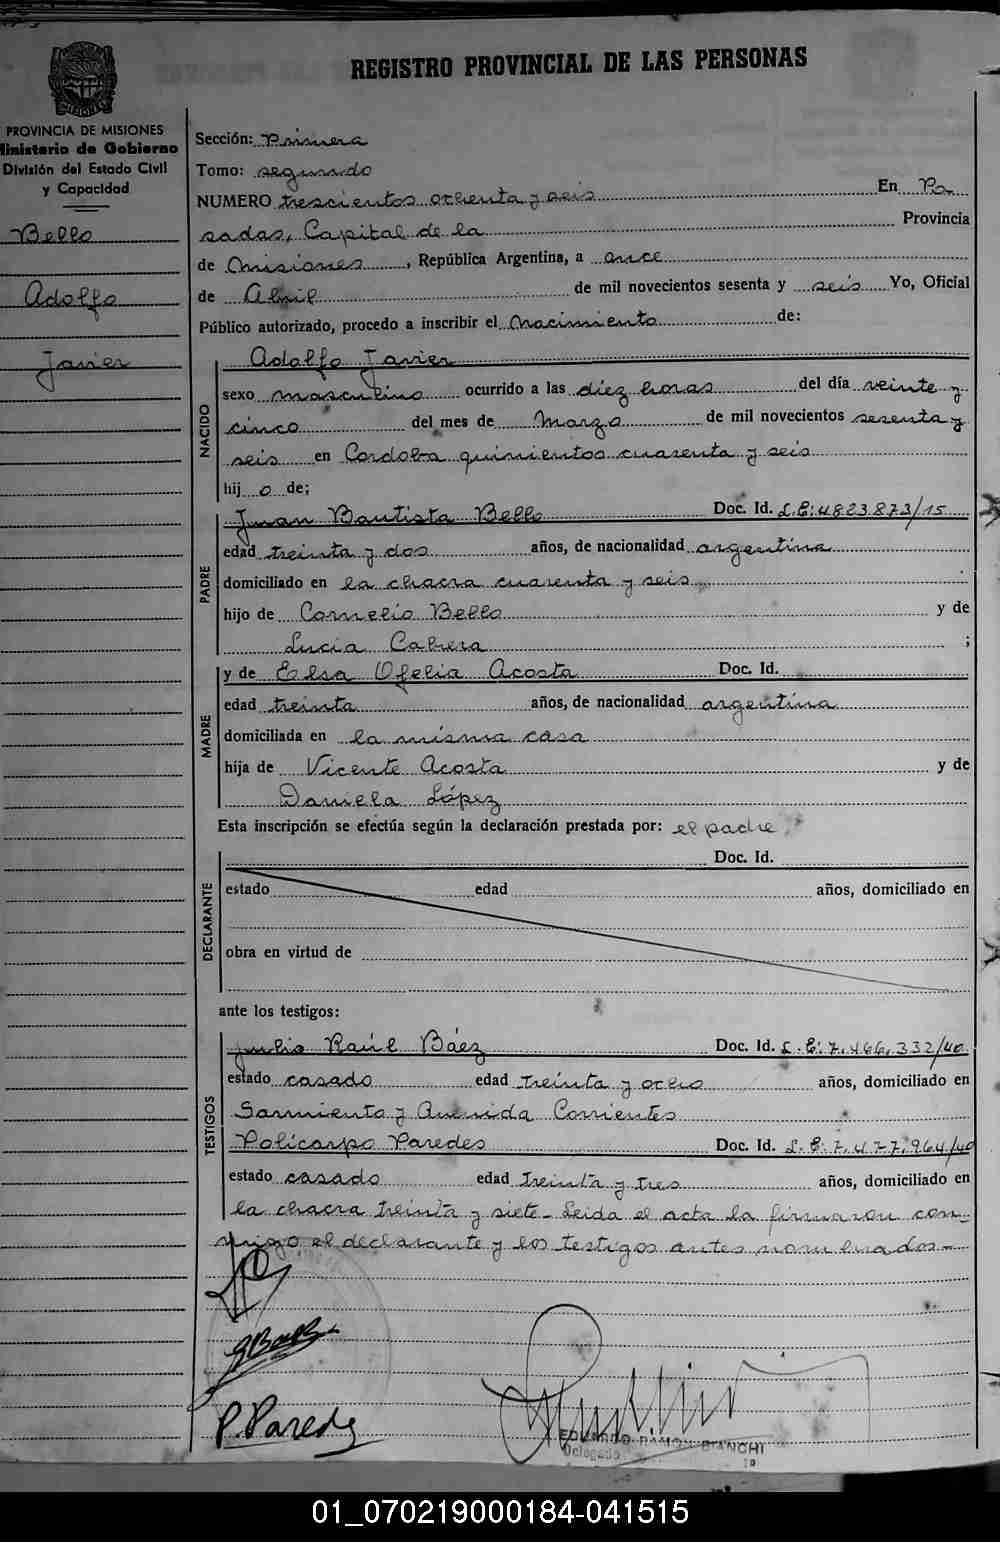 REGISTRO PROVINCIAL DE LAS PERSONAS
PROVINCIA DE MISIONES
Ministerio de Gobierno
División del Estado Civil
y Capacidad
Bello
Adolfo
Javier
Sección: Primera
Tomo: segundo
NUMERO trescientos ochenta y seis En Po
sadas, Capital de la Provincia
de Misiones, República Argentina, a once
de Abril de mil novecientos sesenta y seis Yo, Oficial
Público autorizado, procedo a inscribir el Nacimiento de:
NACIDO
Adolfo Javier
sexo masculino ocurrido a las diez horas del día veinte y
cinco del mes de Marzo de mil novecientos sesenta y
seis en Cordoba quinientos cuarenta y seis
hij o de;
PADRE
Juan Bautista Bello Doc. Id. L.E: 4823.873/15
edad treinta y dos años, de nacionalidad argentina
domiciliado en la chacra cuarenta y seis
hijo de Cornelio Bello y de
Lucía Cabrera ;
MADRE
y de Elsa Ofelia Acosta Doc. Id.
edad treinta años, de nacionalidad argentina
domiciliada en la misma casa
hija de Vicente Acosta y de
Daniela López
Esta inscripción se efectúa según la declaración prestada por: el padre
DECLARANTE
Doc. Id.
estado edad años, domiciliado en
obra en virtud de
ante los testigos:
TESTIGOS
Julio Raúl Báez Doc. Id. L.E: 7.466.332/40
estado casado edad treinta y ocho años, domiciliado en
Sarmiento y Avenida Corrientes
Policarpo Paredes Doc. Id. L.E. 7.477.964/40
estado casado edad treinta y tres años, domiciliado en
la chacra treinta y siete- Leida el acta la firmaron con-
migo el declarante y los testigos antes nombrados-
P. Paredes
EDUARDO RAMON BIANCHI
Delegado
01_070219000184-041515